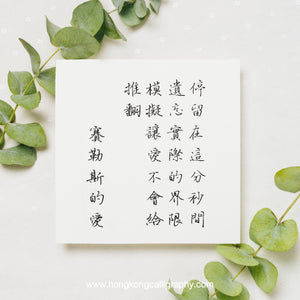 停留在這分秒間
遺忘實際的界限
模擬讓愛不會給
推翻
賽勒斯的愛
www.hongkongcalligraphy.com